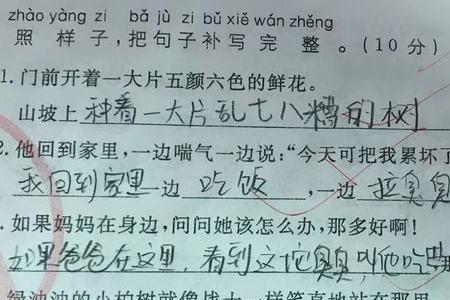 zhào yàng zi bǎ jù zi bǔ xiě wán zhěng
照 样 子，把 句 子 补 写 完 整 。(10 分)
1. 门前开着一大片五颜六色的鲜花。
山坡上种着一大片乱七八糟的树
2. 他回到家里，一边喘气一边说：“今天可把我累坏了
我回到家里一边吃饭，一边拉臭臭
. 如果妈妈在身边，问问她该怎么办，那多好啊！
如果爸爸在这里，看到这坨臭臭叫他吃
绿油油的小柏树就像战士一样笔直地站在那里